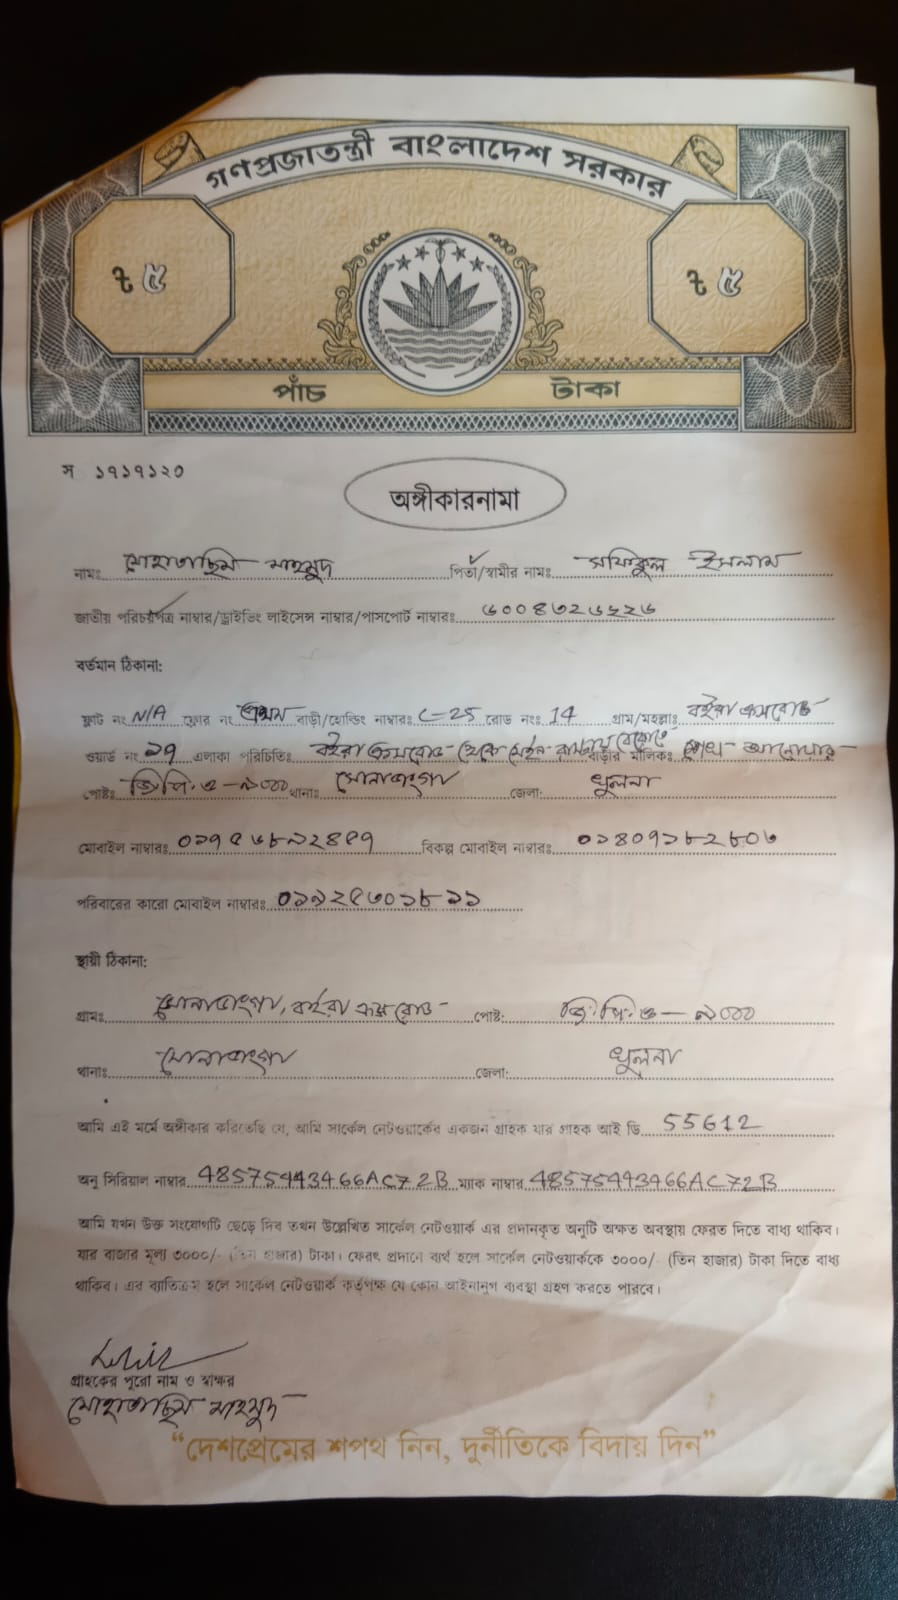 গণপ্রজাতন্ত্রী বাংলাদেশ সরকার
৳ ৫ ৳ ৫
পাঁচ টাকা
স ১৭১৭১২০
অঙ্গীকারনামা
নামঃ মোহাতাছিম মাহমুদ পিতা/স্বামীর নামঃ সফিকুল ইসলাম
জাতীয় পরিচয়পত্র নাম্বার/ড্রাইভিং লাইসেন্স নাম্বার/পাসপোর্ট নাম্বারঃ
বর্তমান ঠিকানা:
ফ্লাট নং N/A ফ্লোর নং বাড়ী/হোল্ডিং নাম্বারঃ C-25 রোড নংঃ 14 গ্রাম/মহল্লাঃ বইরা ক্রসরোড
ওয়ার্ড নং ১৭ এলাকা পরিচিতিঃ বইরা ক্রসরোড থেকে মেইন বাড়ীর মালিকঃ শেখ আনোয়ার
পোষ্টঃ জি.পি.ও - ৯০০০ থানাঃ সোনাডাংগা জেলা: খুলনা
মোবাইল নাম্বারঃ বিকল্প মোবাইল নাম্বারঃ
পরিবারের কারো মোবাইল নাম্বারঃ
স্থায়ী ঠিকানা:
গ্রামঃ সোনাডাংগা, বইরা ক্রস রোড পোষ্ট: জি.পি.ও - ৯০০০
থানাঃ সোনাডাংগা জেলা: খুলনা
আমি এই মর্মে অঙ্গীকার করিতেছি যে, আমি সার্কেল নেটওয়ার্কের একজন গ্রাহক যার গ্রাহক আই ডি 55612
অনু সিরিয়াল নাম্বার 48575443466AC72B ম্যাক নাম্বার 48575443466AC72B
আমি যখন উক্ত সংযোগটি ছেড়ে দিব তখন উল্লেখিত সার্কেল নেটওয়ার্ক এর প্রদানকৃত অনুটি অক্ষত অবস্থায় ফেরত দিতে বাধ্য থাকিব।
যার বাজার মূল্য ৩০০০/- (তিন হাজার) টাকা। ফেরৎ প্রদানে ব্যর্থ হলে সার্কেল নেটওয়ার্ককে ৩০০০/- (তিন হাজার) টাকা দিতে বাধ্য
থাকিব। এর ব্যতিক্রম হলে সার্কেল নেটওয়ার্ক কর্তৃপক্ষ যে কোন আইনানুগ ব্যবস্থা গ্রহণ করতে পারবে।
গ্রাহকের পুরো নাম ও স্বাক্ষর
মোহাতাছিম মাহমুদ
“দেশপ্রেমের শপথ নিন, দুর্নীতিকে বিদায় দিন”